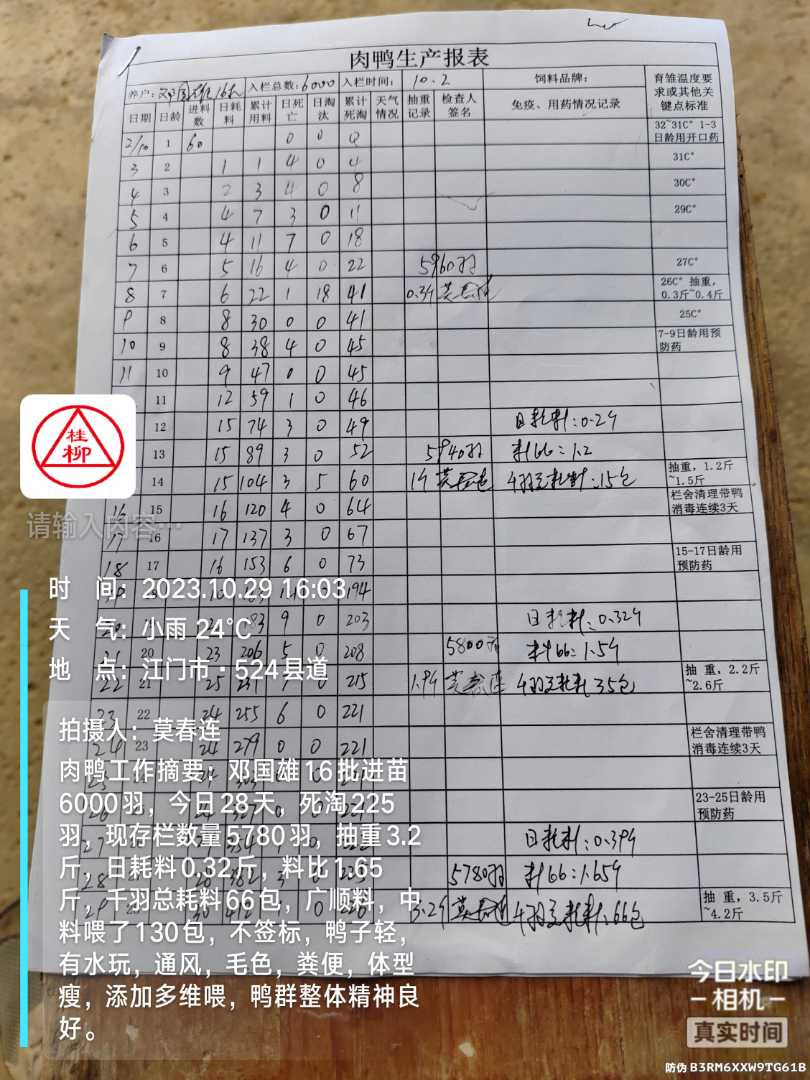 肉鸭生产报表
养户: 邓国雄16批 入栏总数: 6000 入栏时间: 10.2 饲料品牌: 育雏温度要求或其他关键点标准
日期 日龄 进料数 日耗料 累计用料 日死亡 日淘汰 累计死淘 天气情况 抽重记录 检查人签名 免疫、用药情况记录
2/10 1 60 0 0 0 32~31C° 1-3日龄用开口药
3 2 1 1 4 0 4 31C°
4 3 2 3 4 0 8 30C°
5 4 4 7 3 0 11 29C°
6 5 4 11 7 0 18
7 6 5 16 4 0 22 5960羽 27C°
8 7 6 22 1 18 41 0.3斤 莫春连 26C° 抽重,0.3斤~0.4斤
9 8 8 30 0 0 41 25C°
10 9 8 38 4 0 45 7-9日龄用预防药
11 10 9 47 0 0 45
11 12 59 1 0 46
12 15 74 3 0 49 日耗料:0.2斤
13 15 89 3 0 52 5940羽 料比:1.2
14 15 104 3 5 60 1斤 莫春连 千羽总耗料:15包 抽重,1.2斤~1.5斤
16 15 16 120 4 0 64 栏舍清理带鸭消毒连续3天
17 16 17 137 3 0 67
18 17 16 153 6 0 73 15-17日龄用预防药
194
83 9 0 203 日耗料:0.32斤
21 20 23 206 5 0 208 5800羽 料比:1.5斤
22 21 25 0 215 1.9斤 莫春连 千羽总耗料35包 抽重,2.2斤~2.6斤
23 22 24 255 6 0 221
24 23 24 279 0 0 221 栏舍清理带鸭消毒连续3天
23-25日龄用预防药
27 日耗料:0.39斤
28 5780羽 料比:1.65斤
29 3.2斤 莫春连 千羽总耗料:66包 抽重,3.5斤~4.2斤
桂柳
请输入内容…
时 间:2023.10.29 16:03
天 气:小雨 24°C
地 点:江门市·524县道
拍摄人:莫春连
肉鸭工作摘要:邓国雄16批进苗
6000羽，今日28天，死淘225
羽，现存栏数量5780羽，抽重3.2
斤，日耗料0,32斤，料比1.65
斤，千羽总耗料66包，广顺料，中
料喂了130包，不签标，鸭子轻，
有水玩，通风，毛色，粪便，体型
瘦，添加多维喂，鸭群整体精神良
好。
今日水印
相机
真实时间
防伪 B3RM6XXW9TG61B